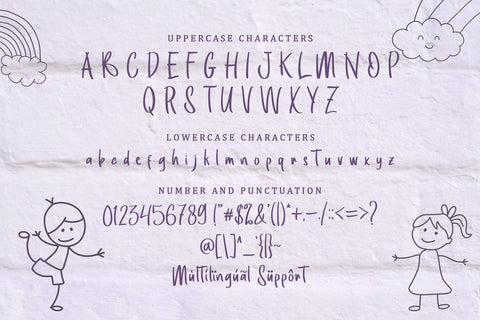 UPPERCASE CHARACTERS
ABCDEFGHIJKLMNOP
QRSTUVWXYZ
LOWERCASE CHARACTERS
abcdefghijklmnopqrstuvwxyz
NUMBER AND PUNCTUATION
0123456789 !"#$%&'()*+,-./:;<=>?
@[\]^_`{|}~
Múltilingúãl Süppôrt